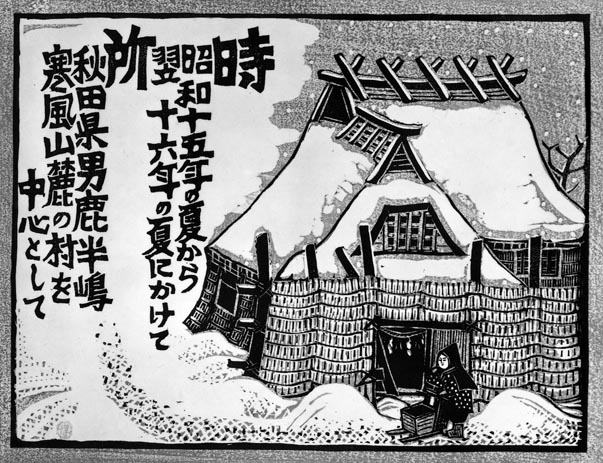 時
昭和十五年の夏から
翌 十六年の夏にかけて
所
秋田県男鹿半嶋
寒風山麓の村を
中心として